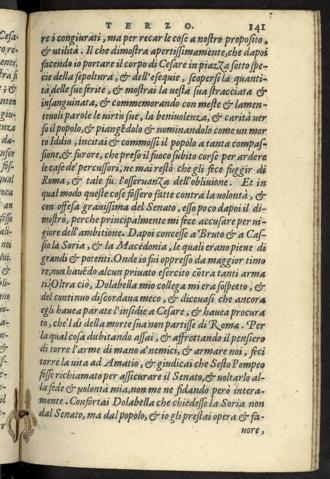 TERZO. 141
re i congiurati, ma per recar le cose a nostro proposito,
& utilità. Il che dimostra apertissimamente, che dapoi
facendo io portare il corpo di Cesare in piazza sotto spe
cie della sepoltura, & dell'esequie, scopersi la quanti-
tà delle sue ferite, & mostrai la uesta sua stracciata &
insanguinata, & commemorando con meste & lamen-
teuoli parole le uirtu sue, la beniuolenza, & carità uer
so il popolo, & piangẽdolo & nominandolo come un mor
to Iddio, incitai & commossi il popolo a tanta compas-
sione, & furore, che preso il fuoco subito corse per ardere
le case de' percussori, ne mai restò che gli fece fuggir di
Roma, & tale fu l'osseruanza dell'obliuione. Et in
qual modo queste cose fossero fatte contra la uolontà, &
con offesa grauissima del Senato, esso poco dapoi il di-
mostrò, perche principalmente mi fece accusare per ni-
giore dell'ambitione. Dapoi concesse a Bruto & a Cas-
sio la Soria, & la Macedonia, le quali erano piene di
grandi & potenti. Onde io fui oppresso da maggior timo
re, non hauẽdo alcun priuato esercito cõtra tanti arma
ti. Oltra ciò, Dolabella mio collega mi era sospetto, &
del continuo discordaua meco, & diceuasi che ancora
egli haueа parate l'insidie a Cesare, & hauea procura
to, che'l di della morte sua non partisse di Roma. Per
la qual cosa dubitando assai, & affrettando il pensiero
di torre l'arme di mano a' nemici, & armare noi, feci
torre la uita ad Amatio, & giudicai che Sesto Pompeo
fosse richiamato per assicurare il Senato, & uoltarlo al-
la fide & uolontà mia, non me ne fidando però intera-
mente. Confortai Dolabella che chiedesse la Soria non
dal Senato, ma dal popolo, & io gli prestai opera & fa-
uore,